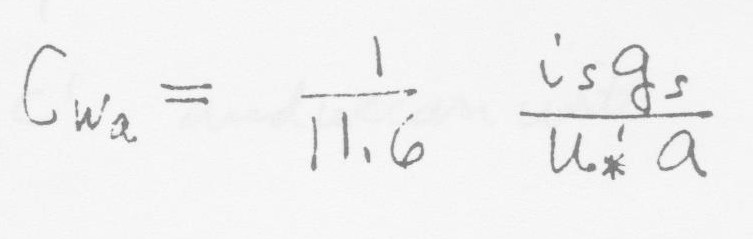 C_{wa} = \frac{1}{11.6} \frac{i_s g_s}{u_*' a}